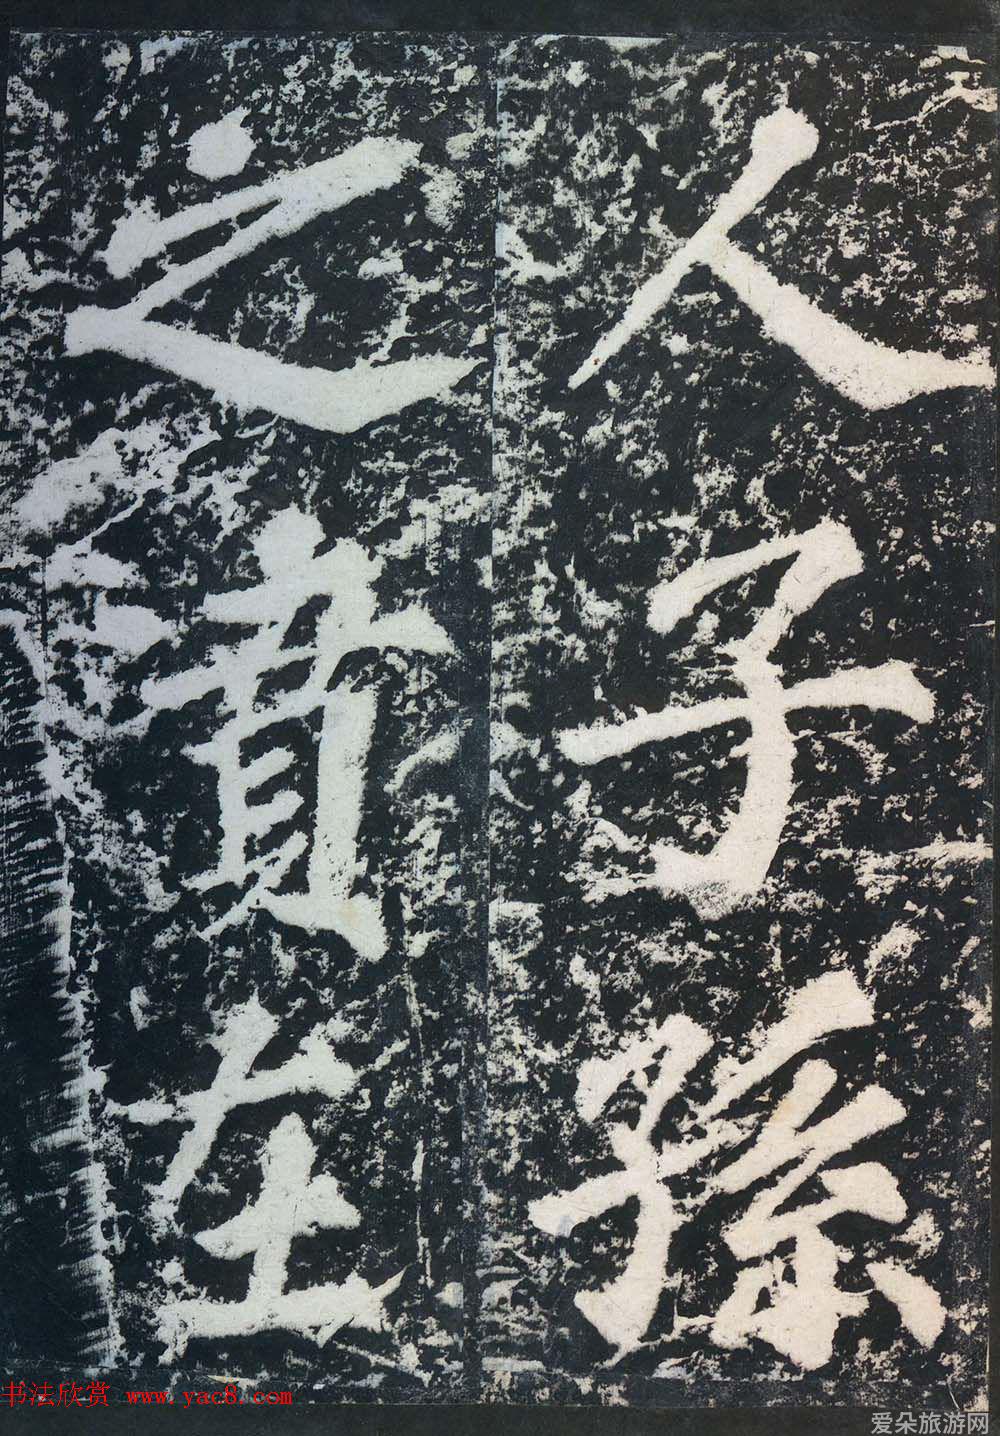 人子孫
之責在
书法欣赏 www.yac8.com
爱朵旅游网